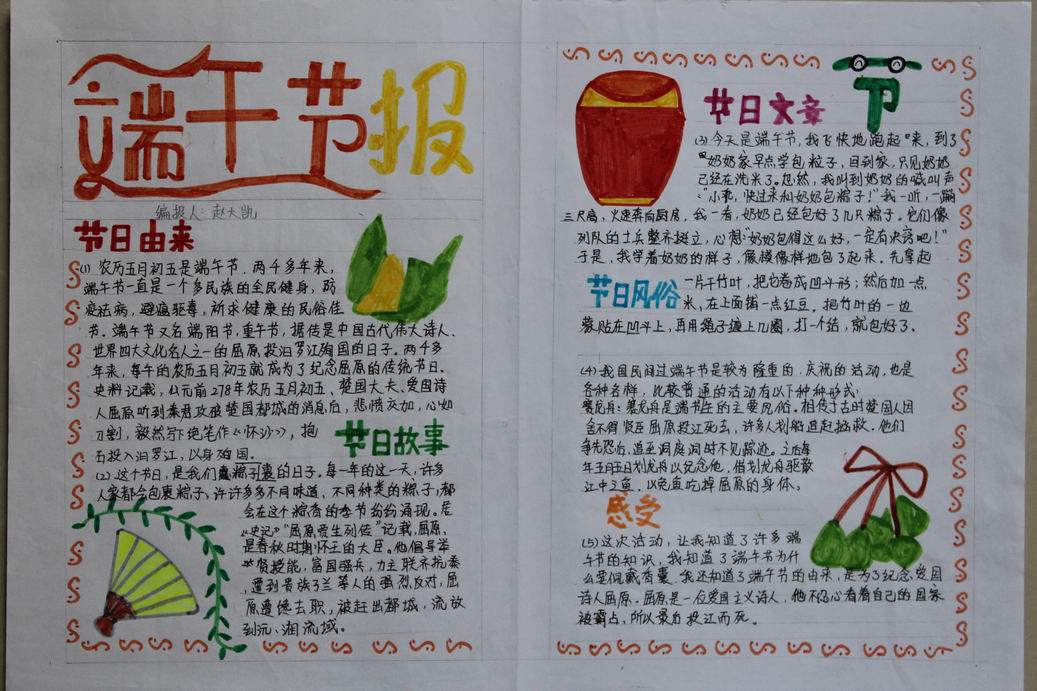 端午节报
编报人：赵大凯
节日由来
(1) 农历五月初五是端午节．两千多年来，
端午节一直是一个多民族的全民健身，防
疫祛病，避瘟驱毒，祈求健康的民俗佳
节．端午节又名端阳节，重午节，据传是中国古代伟大诗人、
世界四大文化名人之一的屈原投汨罗江殉国的日子。两千多
年来，每年的农历五月初五就成为了纪念屈原的传统节日。
史料记载，公元前278年农历五月初五、楚国大夫、爱国诗
人屈原听到秦君攻破楚国都城的消息后，悲愤交加，心如
刀割，毅然写下绝笔作《怀沙》，抱
石投入汨罗江，以身殉国。
节日故事
(2) 这个节日，是我们裹的日子。每一年的这一天，许多
人家都会包裹粽子，许许多多不同味道，不同种类的粽子，都
会在这个粽香的季节纷纷涌现。居
《史记》"屈原贾生列传"记载，屈原，
是春秋时期怀王的大臣。他倡导举
贤授能，富国强兵，力主联齐抗秦
，遭到贵族子兰等人的强烈反对，屈
原遭馋去职，被赶出都城，流放
到沅、湘流域。
节
节日文章
(3) 今天是端午节，我飞快地跑起来，到了
奶奶家早点学包粒子，回到家，只见奶奶
已经在洗米了。忽然，我叫到奶奶的喊叫声
："小乖，快过来和奶奶包粽子！"我一听，一蹦
三尺高，火速奔向厨房，我一看，奶奶已经包好了几只粽子。它们像
列队的士兵整齐挺立，心想："奶奶包得这么好，一定有决窍吧！"
于是，我学着奶奶的样子，像模像样地包了起来．先拿起
一片干竹叶，把它卷成凹斗形；然后加一点
米，在上面铺一点红豆。把竹叶的一边
贴在凹斗上，再用绳子缠上几圈，打一个结，就包好了．
节日风俗
(4) 我国民间过端午节是较为隆重的．庆祝的活动，也是
各种各样，比较普通的活动有以下种种形式：
赛龙舟：赛龙舟是端节的主要风俗。相传于古时楚国人因
舍不得贤臣屈原投江死去，许多人划船追赶拯救。他们
争先恐后，追至洞庭湖时不见踪迹。之后每
年五月五日划龙舟以纪念他，借划龙舟驱散
江中之鱼．以免鱼吃掉屈原的身体。
感受
(5) 这次活动，让我知道了许多端
午节的知识，我知道了端午节为什
么要佩戴香囊．我还知道了端午节的由来，是为了纪念爱国
诗人屈原．屈原是一位爱国主义诗人，他不忍心看着自己的国家
被霸占，所以最后投江而死。